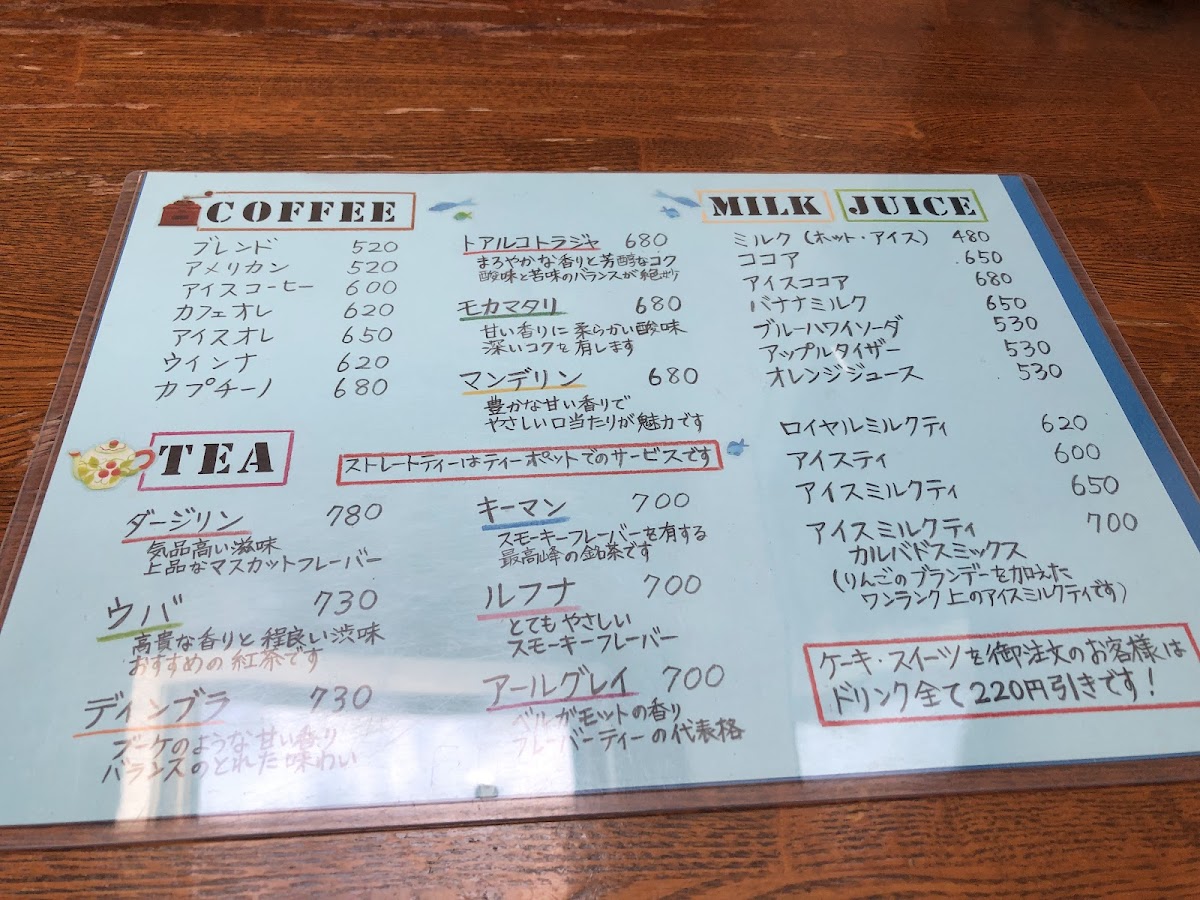 COFFEE
ブレンド 520
アメリカン 520
アイスコーヒー 600
カフェオレ 620
アイスオレ 650
ウインナ 620
カプチーノ 680
トアルコトラジャ 680
まろやかな香りと芳醇なコク
酸味と苦味のバランスが絶妙
モカマタリ 680
甘い香りに柔らかい酸味
深いコクを有します
マンデリン 680
豊かな甘い香りで
やさしい口当たりが魅力です
TEA
ストレートティーはティーポットでのサービスです
ダージリン 780
気品高い滋味
上品なマスカットフレーバー
ウバ 730
高貴な香りと程良い渋味
おすすめの紅茶です
ディンブラ 730
ブーケのような甘い香り
バランスのとれた味わい
キーマン 700
スモーキフレーバーを有する
最高峰の銘茶です
ルフナ 700
とてもやさしい
スモーキーフレーバー
アールグレイ 700
ベルガモットの香り
フレーバーティーの代表格
MILK JUICE
ミルク(ホット・アイス) 480
ココア 650
アイスココア 680
バナナミルク 650
ブルーハワイソーダ 530
アップルタイザー 530
オレンジジュース 530
ロイヤルミルクティ 620
アイスティ 600
アイスミルクティ 650
アイスミルクティ 700
カルバドスミックス
(りんごのブランデーを加えた
ワンランク上のアイスミルクティです)
ケーキ・スイーツを御注文のお客様は
ドリンク全て220円引きです!